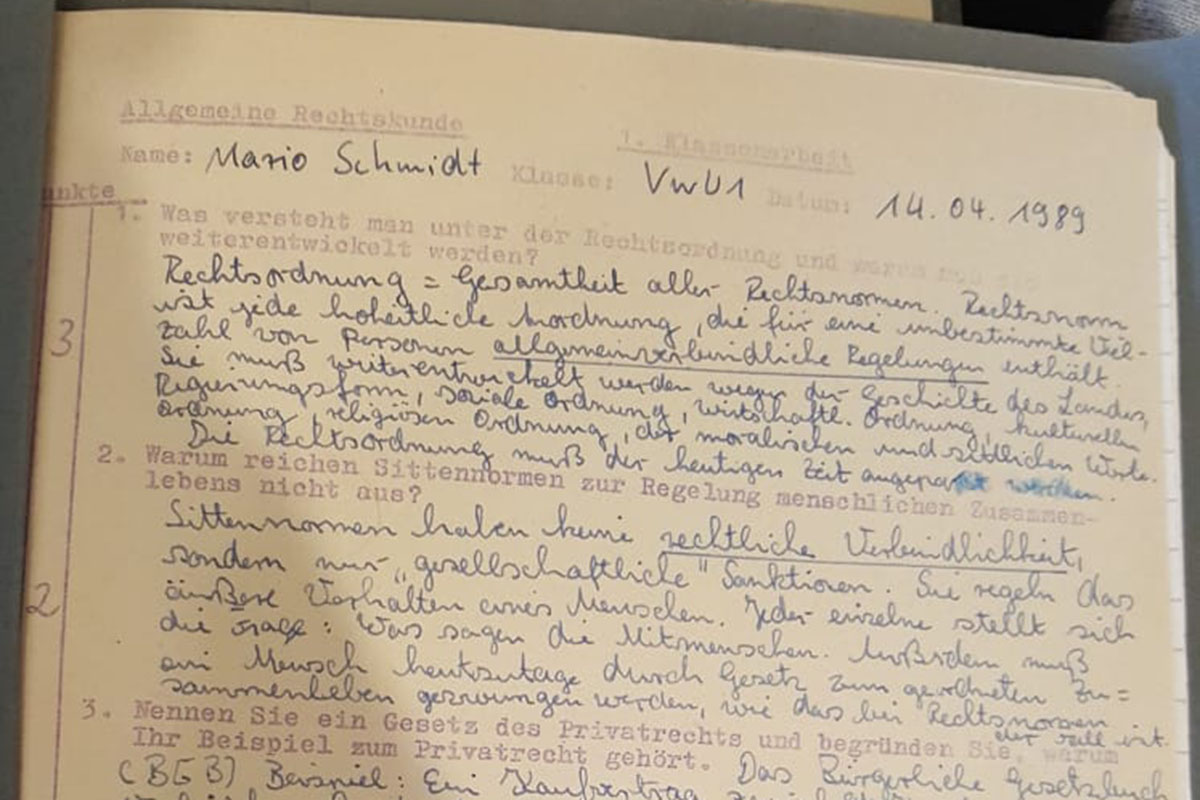 Allgemeine Rechtskunde
1. Klassenarbeit
Name: Mario Schmidt Klasse: VwU1 Datum: 14.04.1989
unkte
1. Was versteht man unter der Rechtsordnung und warum muß sie
weiterentwickelt werden?
Rechtsordnung = Gesamtheit aller Rechtsnormen. Rechtsnorm
ist jede hoheitliche Anordnung, die für eine unbestimmte Viel-
3
zahl von Personen allgemeinverbindliche Regelungen enthält.
Sie muß weiterentwickelt werden wegen der Geschichte des Landes,
Regierungsform, soziale Ordnung, wirtschaftl. Ordnung, kulturellen
Ordnung, religiösen Ordnung, der moralischen und sittlichen Werte.
Die Rechtsordnung muß der heutigen Zeit angepaßt werden.
2. Warum reichen Sittennormen zur Regelung menschlichen Zusammen-
lebens nicht aus?
Sittennormen haben keine rechtliche Verbindlichkeit,
sondern nur „gesellschaftliche" Sanktionen. Sie regeln das
2
äußere Verhalten eines Menschen. Jeder einzelne stellt sich
die Frage: Was sagen die Mitmenschen. Außerdem muß
ein Mensch heutzutage durch Gesetz zum geordneten Zu=
sammenleben gezwungen werden, wie das bei Rechtsnormen
der Fall ist.
3. Nennen Sie ein Gesetz des Privatrechts und begründen Sie, warum
Ihr Beispiel zum Privatrecht gehört. Das Bürgerliche Gesetzbuch
(BGB) Beispiel: Ein Kaufvertrag